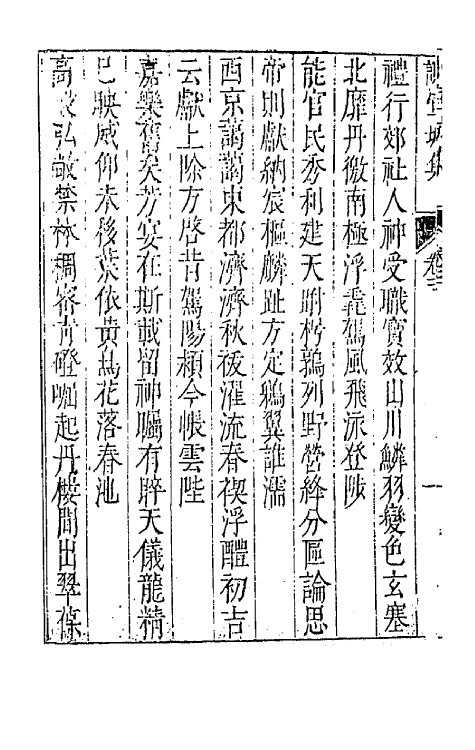 謝宣城集 卷三 一
禮行郊社人神受職寶效山川鱗羽變色玄塞
北靡丹徼南極浮毳駕風飛泳登陟
能官民秀利建天跗枵鶉列野營絳分區論思
帝則獻納宸樞麟趾方定鵷翼誰濡
西京藹藹東都濟濟秋祓濯流春禊浮醴初吉
云獻上除方啓昔駕陽潁今帳雲陛
嘉樂舊矣芳宴在斯載留神矚有睟天儀龍精
已映威仰未移葉依黄鳥花落春池
高宴弘敞禁林稠密青磴崛起丹樓間出翠葆